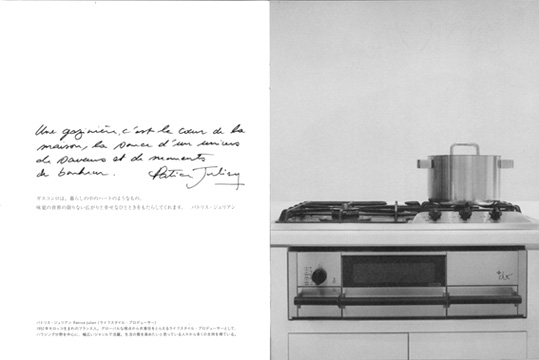 Une gazinière, c'est le cœur de la
maison, la source d'un univers
de saveurs et de moments
de bonheur. Patrice Julien
ガスコンロは、暮らしの中のハートのようなもの。
味覚の世界の限りない広がりと幸せなひとときをもたらしてくれます。 パトリス・ジュリアン
パトリス・ジュリアン Patrice Julien（ライフスタイル・プロデューサー）
+do